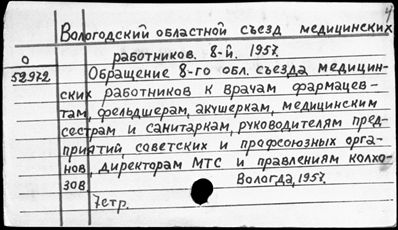 4
Вологодский областной съезд медицинских
О работников. 8-й. 1957.
52972 Обращение 8-го обл. съезда медицин-
ских работников к врачам фармацев-
там, фельдшерам, акушеркам, медицинским
сестрам и санитаркам, руководителям пред-
приятий советских и профсоюзных орга-
нов, директорам МТС и правлениям колхо-
зов. Вологда, 1957.
7стр.